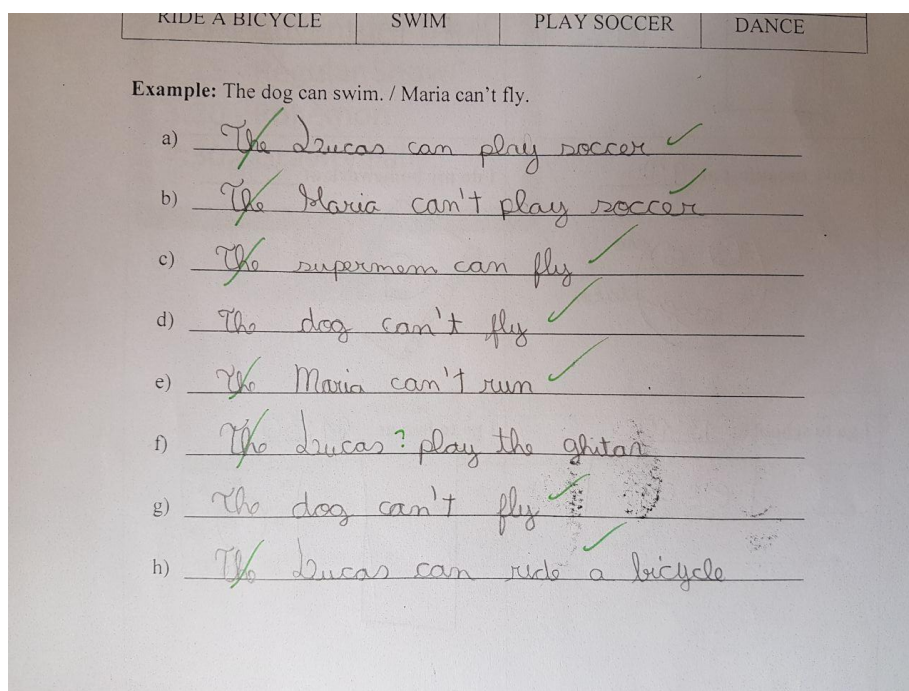 RIDE A BICYCLE SWIM PLAY SOCCER DANCE
Example: The dog can swim. / Maria can't fly.
a) The Lucas can play soccer
b) The Maria can't play soccer
c) The supermem can fly
d) The dog can't fly
e) The Maria can't run
f) The Lucas ? play the ghitar
g) The dog can't fly
h) The Lucas can ride a bicycle